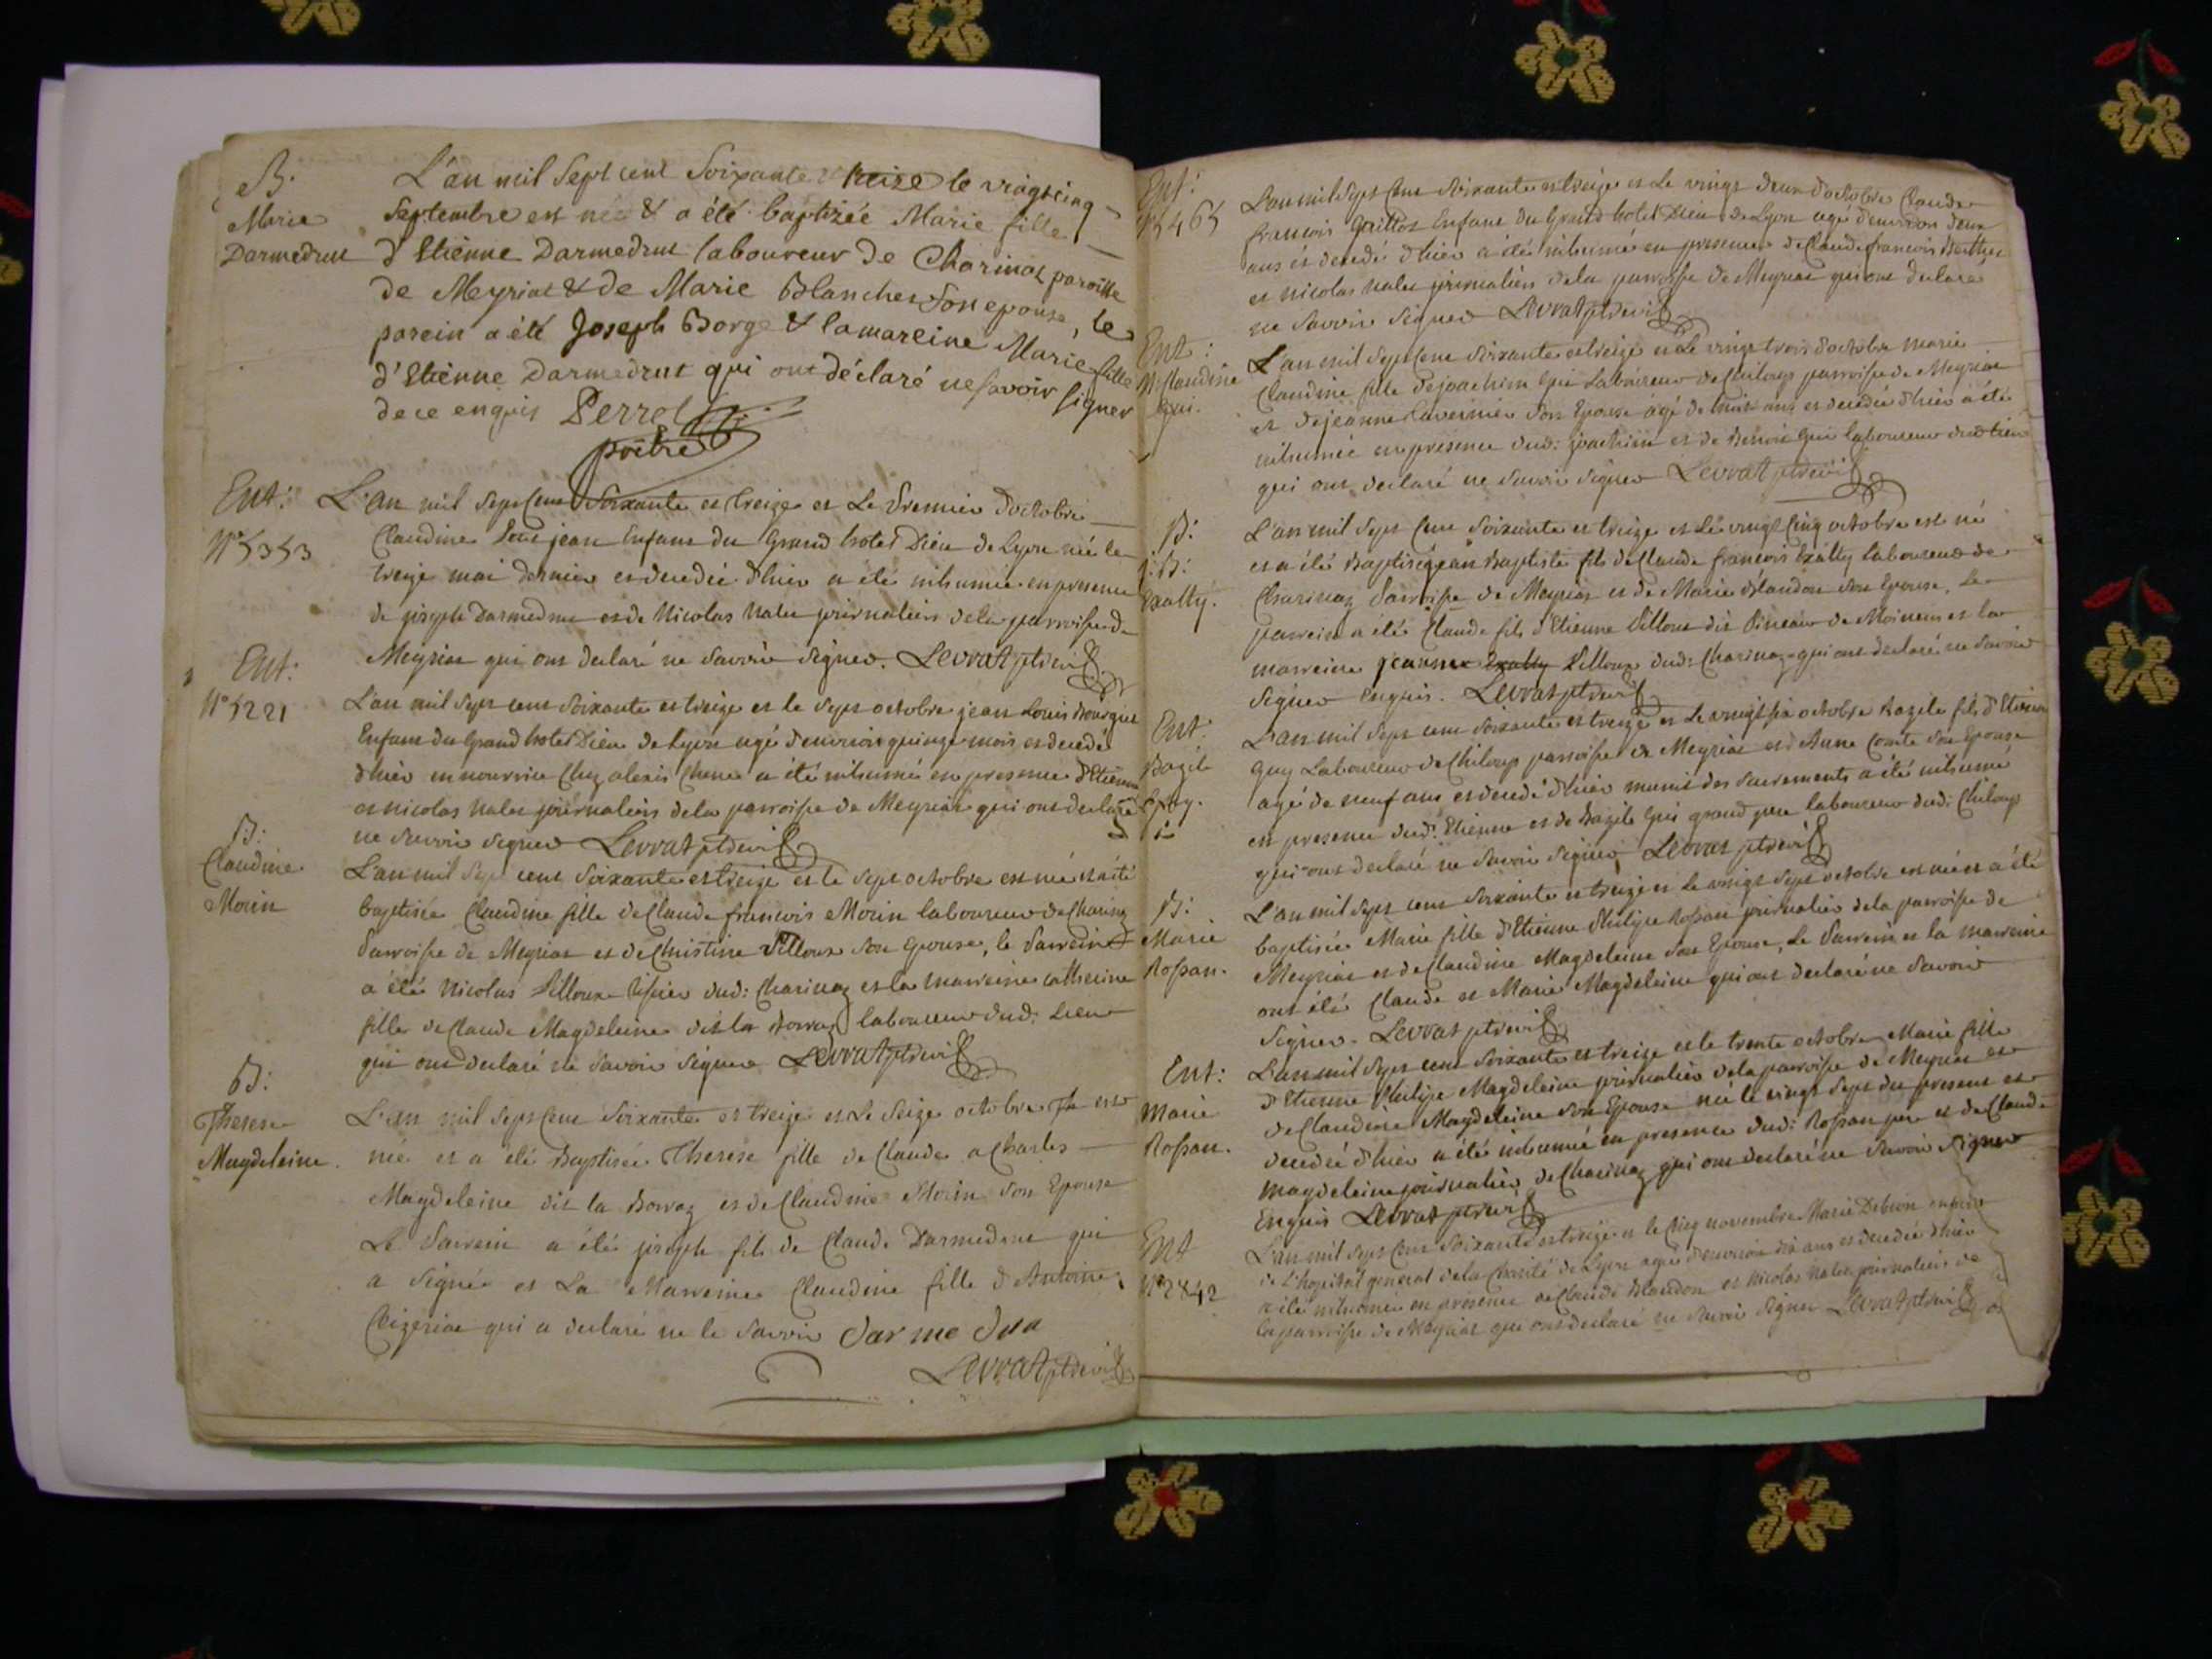 B.
Marie
Darmedrut
L'an mil Sept cent Soixante treize le vingt cinq
Septembre est née & a été baptizée Marie fille
d'Etiénne Darmedrut laboureur de Charinat paroisse
de Meyriat & de Marie Blanchet son epouse, le
parein a été Joseph Borge & la mareine Marie fille
d'Etiénne Darmedrut qui ont déclaré ne savoir signer
de ce enquis Perret
prêtre
Ent:
N° 5353
L'an mil sept cent soixante et treize et le premier d'octobre
Claudine jean Enfant du Grand hotel Dieu de Lyon née le
treize mai dernier et decedée d'hier a été inhumée en presence
de joseph Darmedrut et de Nicolas nalet journaliers de la parroisse de
Meyriat qui ont declaré ne savoir signer. Levrat
Ent:
N° 5221
L'an mil sept cent soixante et treize et le sept octobre jean Louis
Enfant du Grand hotel Dieu de Lyon agé d'environ quinze mois et decedé
d'hier en nourrice chez alexis a été inhumé en presence d'Etienne
et nicolas nalet journaliers de la parroisse de Meyriat qui ont declaré
ne savoir signer Levrat
B:
Claudine
Morin
L'an mil sept cent soixante et treize et le sept octobre est née et a été
baptisée Claudine fille de Claude francois Morin laboureur de Charinaz
Parroisse de Meyriat et de Christine Pilloux son epouse, le Parrein
a été Nicolas Pilloux dud: Charinaz et la marreine catherine
fille de Claude Magdeleine dit la Borraz laboureur dud: Lieu
qui ont declaré ne savoir signer Levrat
B:
Therese
Magdeleine.
L'an mil sept cent soixante et treize et le seize octobre est
née et a été Baptisée Therese fille de Claude Charles
Magdeleine dit la Borraz et de Claudine Morin son Epouse
Le Parrein a été joseph fils de Claude Darmedrut qui
a signé et La Marreine Claudine fille d'Antoine
Chizeriat qui a declaré ne le savoir Darmedrut
Levrat
Ent:
N° 5465
L'an mil sept cent soixante et treize et le vingt deux d'octobre Claude
francois Enfant du Grand hotel Dieu de Lyon agé d'environ deux
ans et decedé d'hier a été inhumé en presence de Claude francois
et nicolas nalet journaliers de la parroisse de Meyriat qui ont declaré
ne savoir signer Levrat
Ent:
M: Claudine
Gui.
L'an mil sept cent soixante et treize et le vingt trois d'octobre marie
Claudine fille de joachim Gui Laboureur de Chiloup parroisse de Meyriat
et de jeanne son Epouse agé de huit ans et decedée d'hier a été
inhumée en presence dud: joachim et de Benoit Gui laboureur dud: lieu
qui ont declaré ne savoir signer Levrat
B:
j: B:
L'an mil sept cent soixante et treize et le vingt cinq octobre est né
et a été Baptisé jean Baptiste fils de Claude francois laboureur de
Charinaz Parroisse de Meyriat et de Marie Blandon son Epouse, Le
parrein a été Claude fils d'Etienne Pilloux dit et la
marreine jeanne Pilloux dud: Charinaz qui ont declaré ne savoir
signer enquis. Levrat
Ent:
Bazile
Guy.
L'an mil sept cent soixante et treize et Le vingt six octobre Bazile fils d'Etienne
Guy Laboureur de Chiloup parroisse de Meyriat et d'Anne Comte son Epouse
agé de neuf ans et decedé d'hier munis des sacrements a été inhumé
en presence dud: Etienne et de Bazile Gui grand pere laboureur dud: Chiloup
qui ont declaré ne savoir signer Levrat
B:
Marie
Rossan.
L'an mil sept cent soixante et treize et Le vingt sept octobre est née et a été
baptisée Marie fille d'Etienne Philipe Rossan journalier de la parroisse de
Meyriat et de Claudine Magdeleine son Epouse, Le Parrein et la marreine
ont été Claude et Marie Magdeleine qui ont declaré ne savoir
signer. Levrat
Ent:
Marie
Rossan.
L'an mil sept cent soixante et treize et le trente octobre Marie fille
d'Etienne Philipe Magdeleine journalier de la parroisse de Meyriat et
de Claudine Magdeleine son Epouse née le vingt sept du present et
decedée d'hier a été inhumée en presence dud: Rossan pere et de Claude
Magdeleine journalier de Charinaz qui ont declaré ne savoir signer
Enquis Levrat
Ent
N° 2842
L'an mil sept cent soixante et treize et le cinq novembre Marie Debion enfant
de L'hopital general de la Charité de Lyon agée d'environ dix ans et decedée d'hier
a été inhumée en presence de Claude Blandon et Nicolas nalet journaliers de
la parroisse de Meyriat qui ont declaré ne savoir signer Levrat